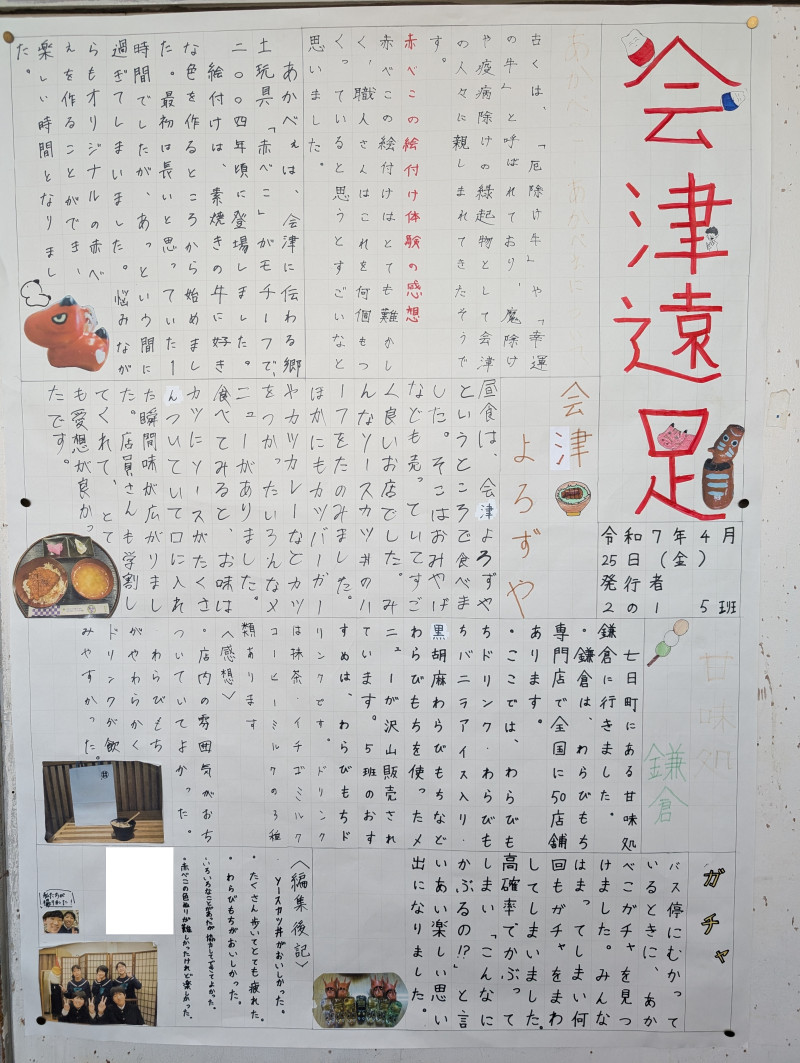 会津遠足
令和7年4月
25日(金)
発行者
2の1 5班
あかべぇ あかべぇに
古くは、「厄除け牛」や「幸運
の牛」と呼ばれており、魔除け
や疫病除けの縁起物として会津
の人々に親しまれてきたそうで
す。
赤べこの絵付け体験の感想
赤べこの絵付けはとても難かし
く、職人さんはこれを何個もつ
くっていると思うとすごいなと
思いました。
あかべぇは、会津に伝わる郷
土玩具「赤べこ」がモチーフで、
二〇〇四年頃に登場しました。
絵付けは、素焼きの牛に好き
な色を作るところから始めまし
た。最初は長いと思っていた1
時間でしたが、あっという間に
過ぎてしまいました。悩みなが
らもオリジナルの赤べ
えを作ることができ、
楽しい時間となりまし
た。
会津
よろずや
昼食は、会津よろずや
というところで食べま
した。そこはおみやげ
なども売っていてすご
く良いお店でした。み
んなソースカツ丼のハ
ーフをたのみました。
ほかにもカツバーガー
やカツカレーなどカツ
をつかったいろんなメ
ニューがありました。
食べてみると、お味は
カツにソースがたくさ
んついていて口に入れ
た瞬間味が広がりまし
た。店員さんも学割し
てくれて、とて
も愛想が良かっ
たです。
甘味処
鎌倉
七日町にある甘味処
鎌倉に行きました。
・鎌倉は、わらびもち
専門店で全国に50店舗
あります。
・ここでは、わらびも
ちドリンク・わらびも
ちバニラアイス入り・
黒胡麻わらびもちなど
わらびもちを使ったメ
ニューが沢山販売され
ています。5班のおす
すめは、わらびもちド
リンクです。ドリンク
は抹茶・イチゴミルク
コーヒーミルクの3種
類あります
〈感想〉
・店内の雰囲気がおち
ついていてよかった。
わらびもち
がやわらかく
ドリンクが飲
みやすかった。
ガチャ
バス停にむかって
いるときに、あか
べこガチャを見つ
けました。みんな
はまってしまい何
回もガチャをまわ
してしまいました。
高確率でかぶって
しまい「こんなに
かぶるの!?」と言
いあい楽しい思い
出になりました。
〈編集後記〉
・ソースカツ丼がおいしかった。
・たくさん歩いてとても疲れた。
・わらびもちがおいしかった。
・いろいろなことがあったが協力してできてよかった。
・赤べこの色ぬりが難しかったけれど楽しかった。
私たちが
撮りました!